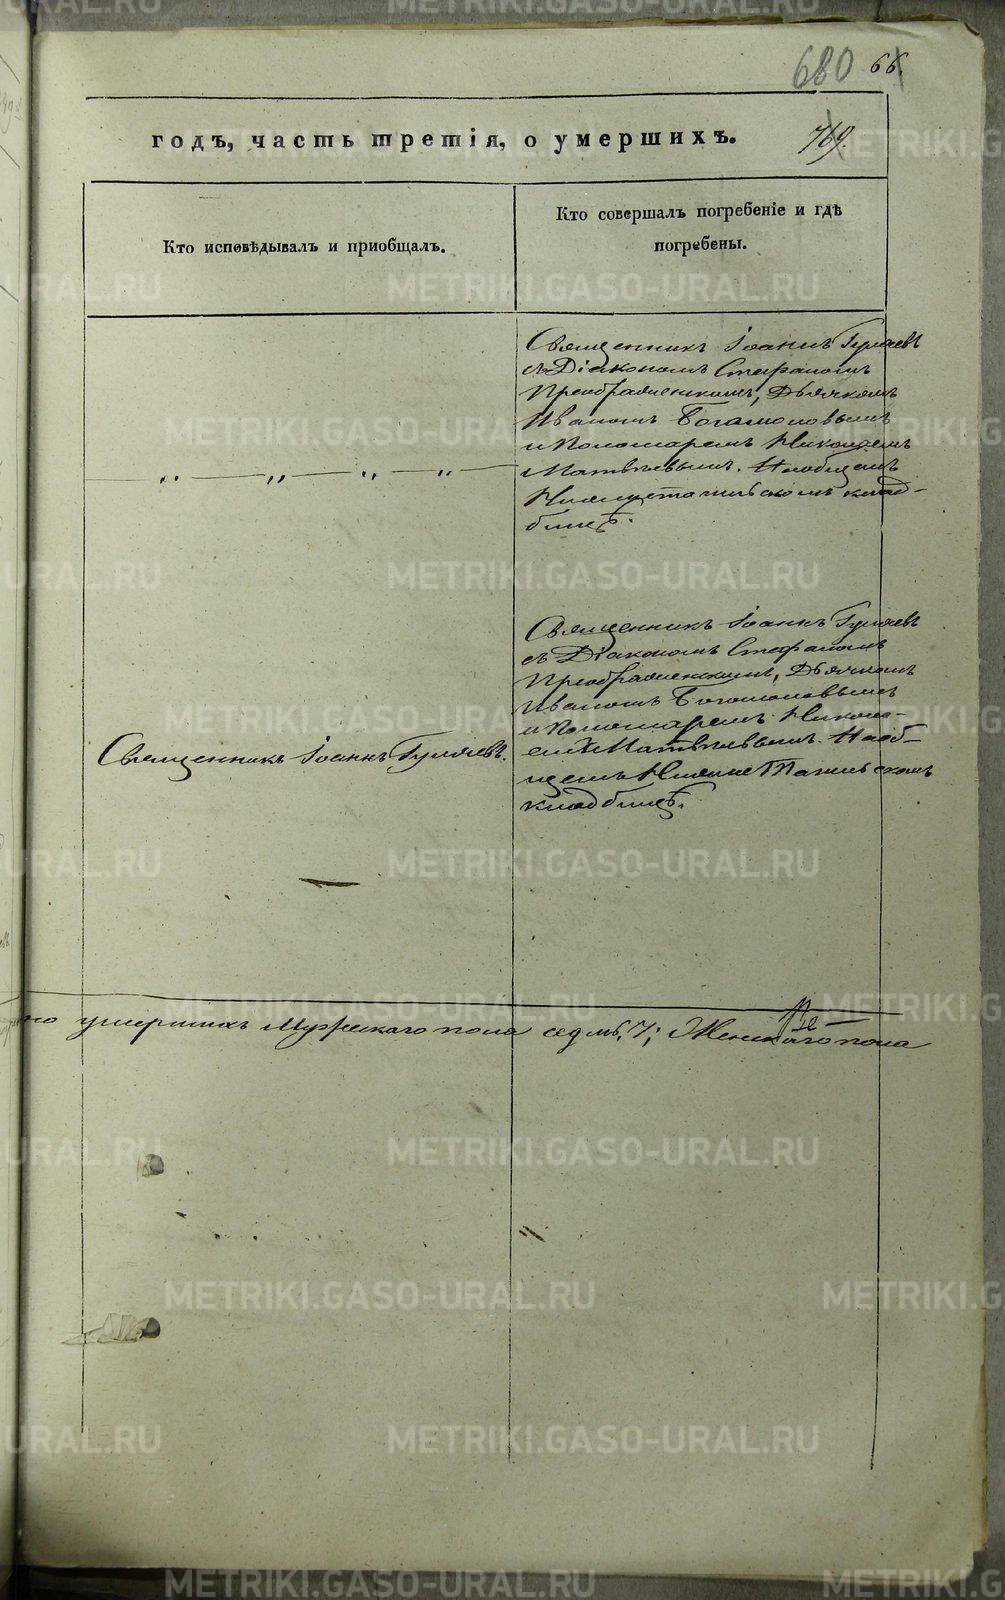 680 66.
годъ, часть третія, о умершихъ. 769.
Кто исповѣдывалъ и приобщалъ.
Кто совершалъ погребеніе и гдѣ
погребены.
Священникъ Іоаннъ Гуляевъ
съ Діакономъ Стефаномъ
Преображенскимъ, Дьячкомъ
Иваномъ Богомоловымъ
и Пономаремъ Николаемъ
Матвѣевымъ. На общемъ
Нижнетагильскомъ клад-
бищѣ.
„ — „ — „ — „ —
Священникъ Іоаннъ Гуляевъ
съ Діакономъ Стефаномъ
Преображенскимъ, Дьячкомъ
Иваномъ Богомоловымъ
и Пономаремъ Никола-
емъ Матвѣевымъ. На об-
щемъ Нижне Тагильскомъ
кладбищѣ.
Священникъ Іоаннъ Гуляевъ.
но умершихъ Мужескаго пола седмь, 7; Женскаго пола
METRIKI.GASO-URAL.RU